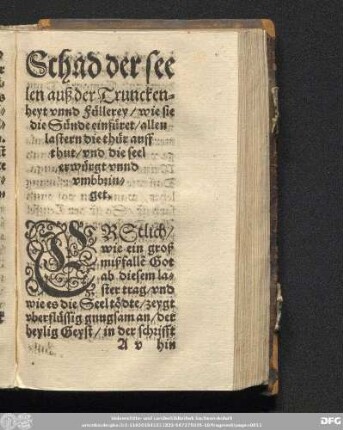 Schad der see
len auß der Truncken-
heyt vnnd Füllerey / wie sie
die Sünde einfüret / allen
lastern die thür auff
thut / vnd die seel
erwürgt vnnd
vmbbrin-
get.
ERStlich /
wie ein groß
mißfallẽ Got
ab diesem la-
ster trag / vnd
wie es die Seel tödte / zeygt
vberflüssig gnugsam an / der
heylig Geyst / in der schrifft
A v hin
DFG